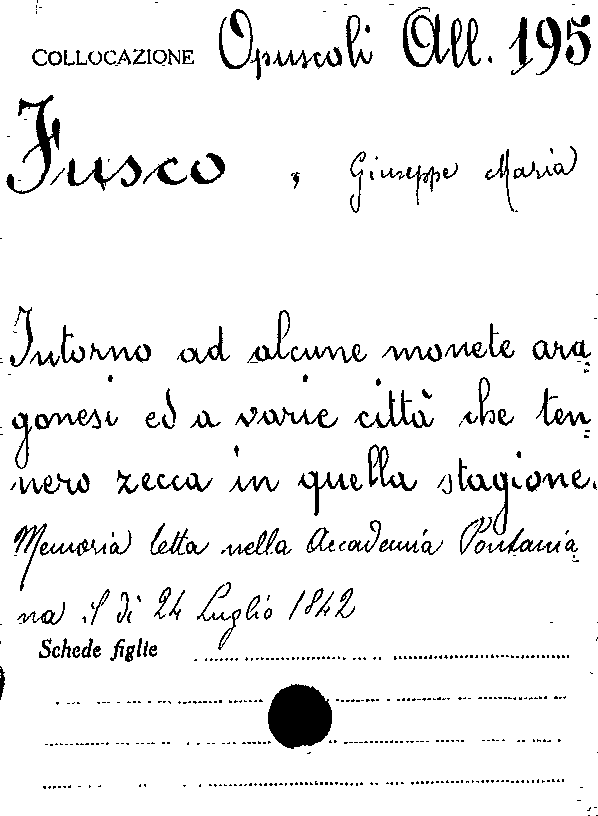 COLLOCAZIONE Opuscoli All. 195
Fusco, Giuseppe Maria
Intorno ad alcune monete ara=
gonesi ed a varie città che ten=
nero zecca in quella stagione.
Memoria letta nella Accademia Pontania=
na il dì 24 Luglio 1842
Schede figlie